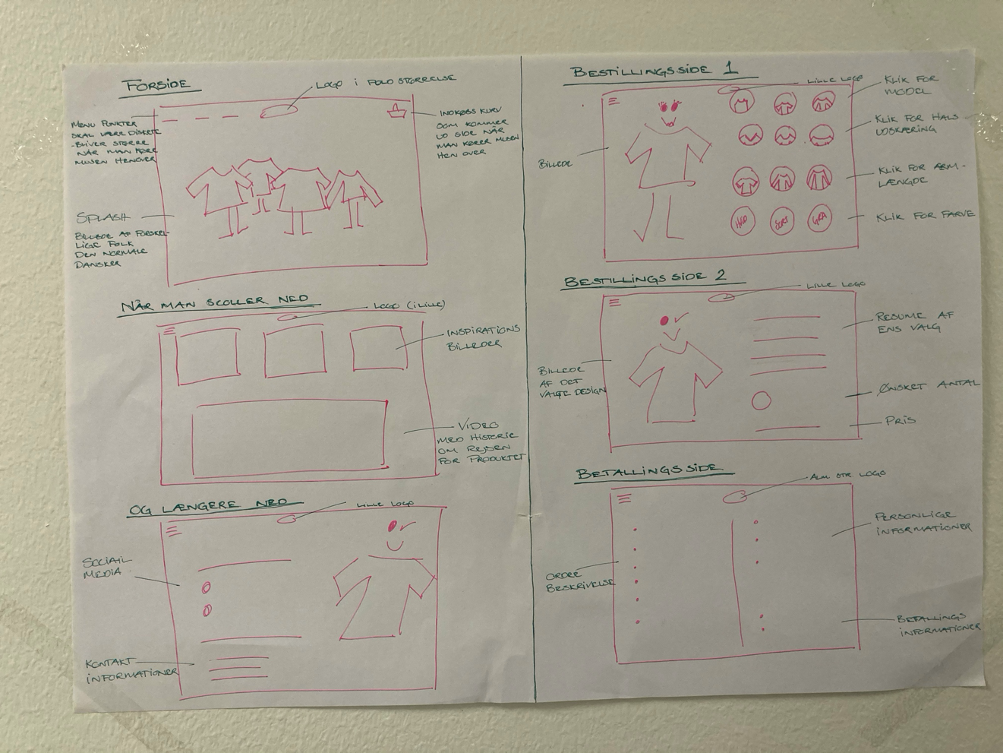 FORSIDE
LOGO I FULD STØRRELSE
MENU PUNKTER
SKAL VÆRE DISKRETE
BLIVER STØRRE
NÅR MAN FØRE
MUSEN HENOVER
INDKØBS KURV
SOM KOMMER
UD SIDE NÅR
MAN KØRER MUSEN
HEN OVER
SPLASH
BILLEDE AF FORSKEL-
LIGE FOLK
DEN NORMALE
DANSKER
NÅR MAN SCOLLER NED
LOGO (I LILLE)
INSPIRATIONS
BILLEDER
VIDEO
MED HISTORIE
OM REJSEN
FOR PRODUKTET
OG LÆNGERE NED
LILLE LOGO
SOCIAIL
MEDIA
KONTAKT
INFORMATIONER
BESTILLINGSSIDE 1
LILLE LOGO
KLIK FOR
MODEL
KLIK FOR HALS
UDSKÆRING
BILLEDE
KLIK FOR ARM-
LÆNGDE
KLIK FOR FARVE
HVID
SORT
GRÅ
BESTILLINGSSIDE 2
LILLE LOGO
RESUME AF
ENS VALG
BILLEDE
AF DET
VALGTE DESIGN
ØNSKET ANTAL
PRIS
BETALLINGSSIDE
ALM STR LOGO
PERSONLIGE
INFORMATIONER
ORDER
BESKRIVELSE
BETALLINGS
INFORMATIONER